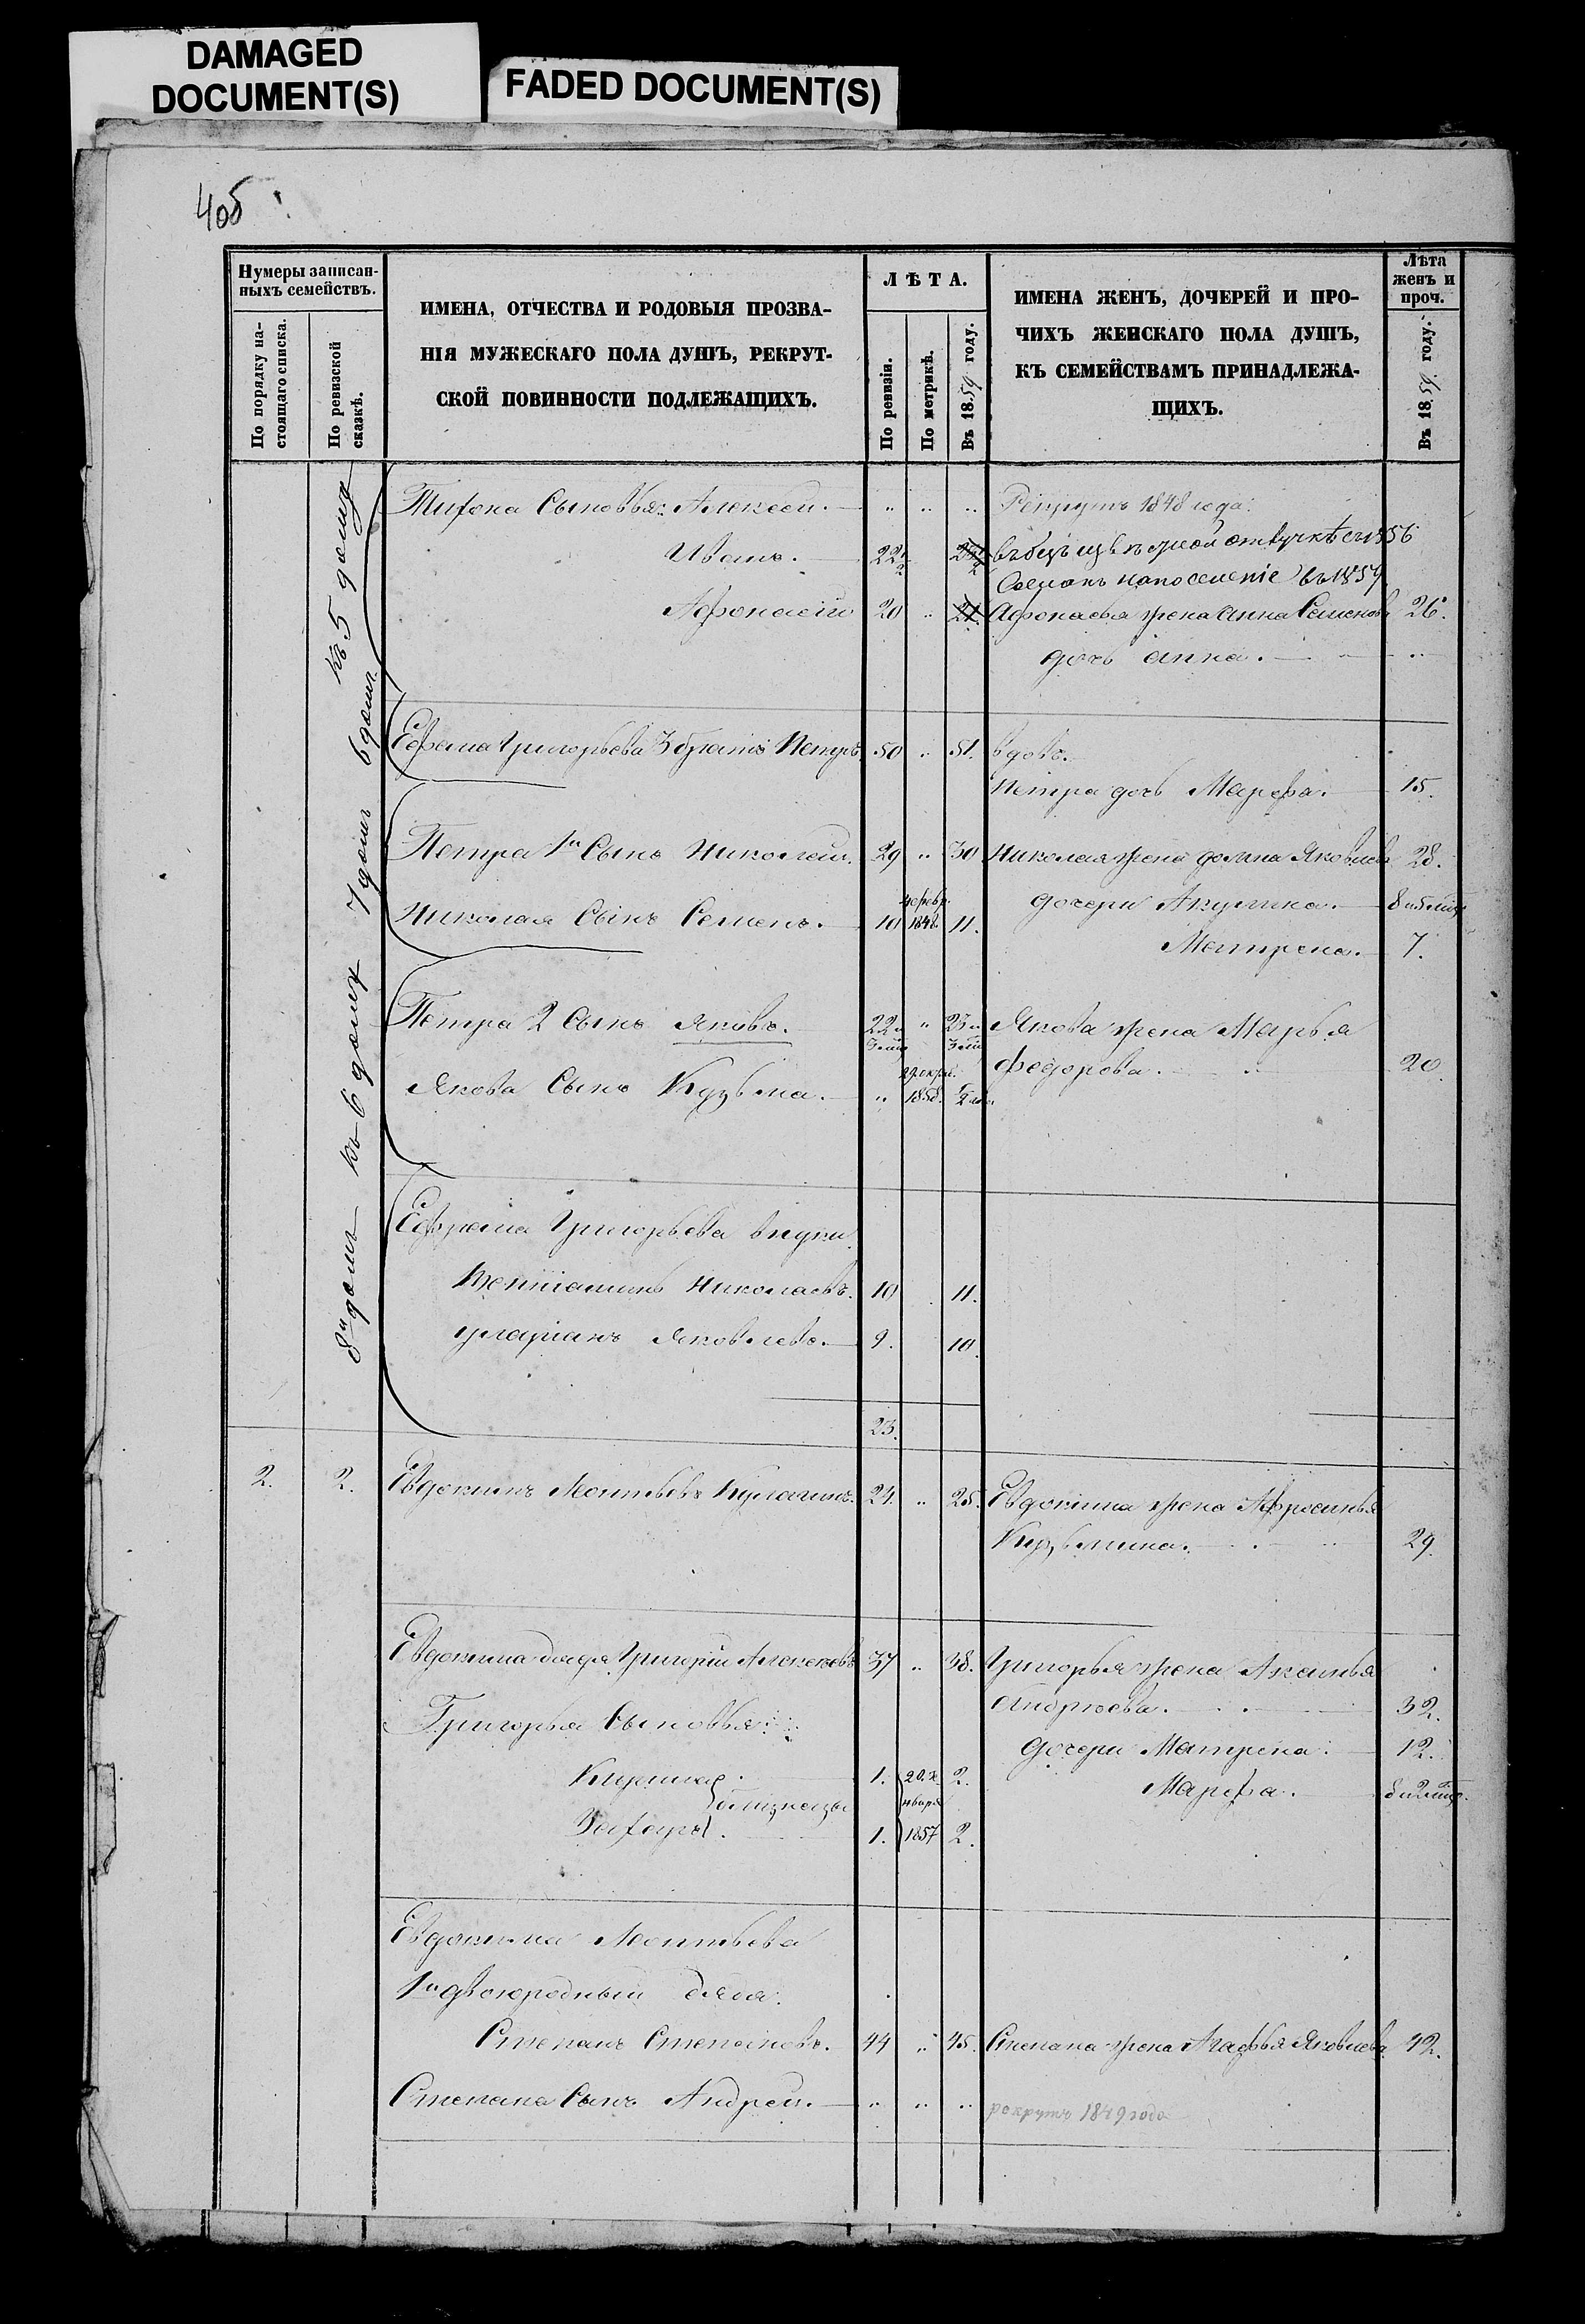 DAMAGED
DOCUMENT(S)
FADED DOCUMENT(S)
405
Нумеры записан-
ныхъ семействъ.
По порядку на-
стоящаго списка.
По ревизской
сказкѣ.
ИМЕНА, ОТЧЕСТВА И РОДОВЫЯ ПРОЗВА-
НІЯ МУЖЕСКАГО ПОЛА ДУШЪ, РЕКРУТ-
СКОЙ ПОВИННОСТИ ПОДЛЕЖАЩИХЪ.
ЛѢТА.
По ревизіи.
По метрикѣ.
Въ 1859 году.
ИМЕНА ЖЕНЪ, ДОЧЕРЕЙ И ПРО-
ЧИХЪ ЖЕНСКАГО ПОЛА ДУШЪ,
КЪ СЕМЕЙСТВАМЪ ПРИНАДЛЕЖА-
ЩИХЪ.
Лѣта
женъ и
проч.
Въ 1859 году.
къ 5 дому
Тихона Сыновья: Алексей. " " " Рекрутъ 1848 года.
Иванъ. 22 1/2
въ 1856
Сосланъ на поселеніе въ 1859
Афонасій 20 " 21. Афонасья жена Анна Семенова 26.
дочь Анна. "
6 домъ
Ефрема Григорьева 3 братъ Петръ 50 " 51. вдовъ.
Петра дочь Марфа. 15.
7 домъ
Петра 1й Сынъ Николай. 29 " 30 Николая жена Яковлева 28.
Николая Сынъ Семенъ. 10 февр. 1848 11. дочери Акулина.
Матрена. 7.
къ 6 дому
Петра 2 Сынъ Яковъ. 22 и " 23 и Якова жена Марья
Федорова. 20.
Якова Сынъ Кузьма. " 1858. 1/2
8й домъ
Ефрема Григорьева внуки
Веніаминъ Николаевъ. 10 11.
Иларіанъ Яковлевъ. 9. 10.
23.
2. 2. Евдокимъ Леонтьевъ Кулагинъ. 24. " 25. Евдокима жена Афросинья
Кузьмина. 29.
Евдокима дядя Григорій Алексѣевъ 37 " 38. Григорья жена Аксинья
Андреева. 32.
Григорья Сыновья:
дочери Матрена. 12.
Кирила 1. 20 января 1857 2. Марфа. 8 и 2 мѣс.
близнецы
Захаръ. 1. 2.
Евдокима Леонтьева
1й двоюродный дядя.
Степанъ Степановъ. 44 " 45. Степана жена Агафья Яковлева 42.
Степана Сынъ Андрей. " " " рекрутъ 1849 года